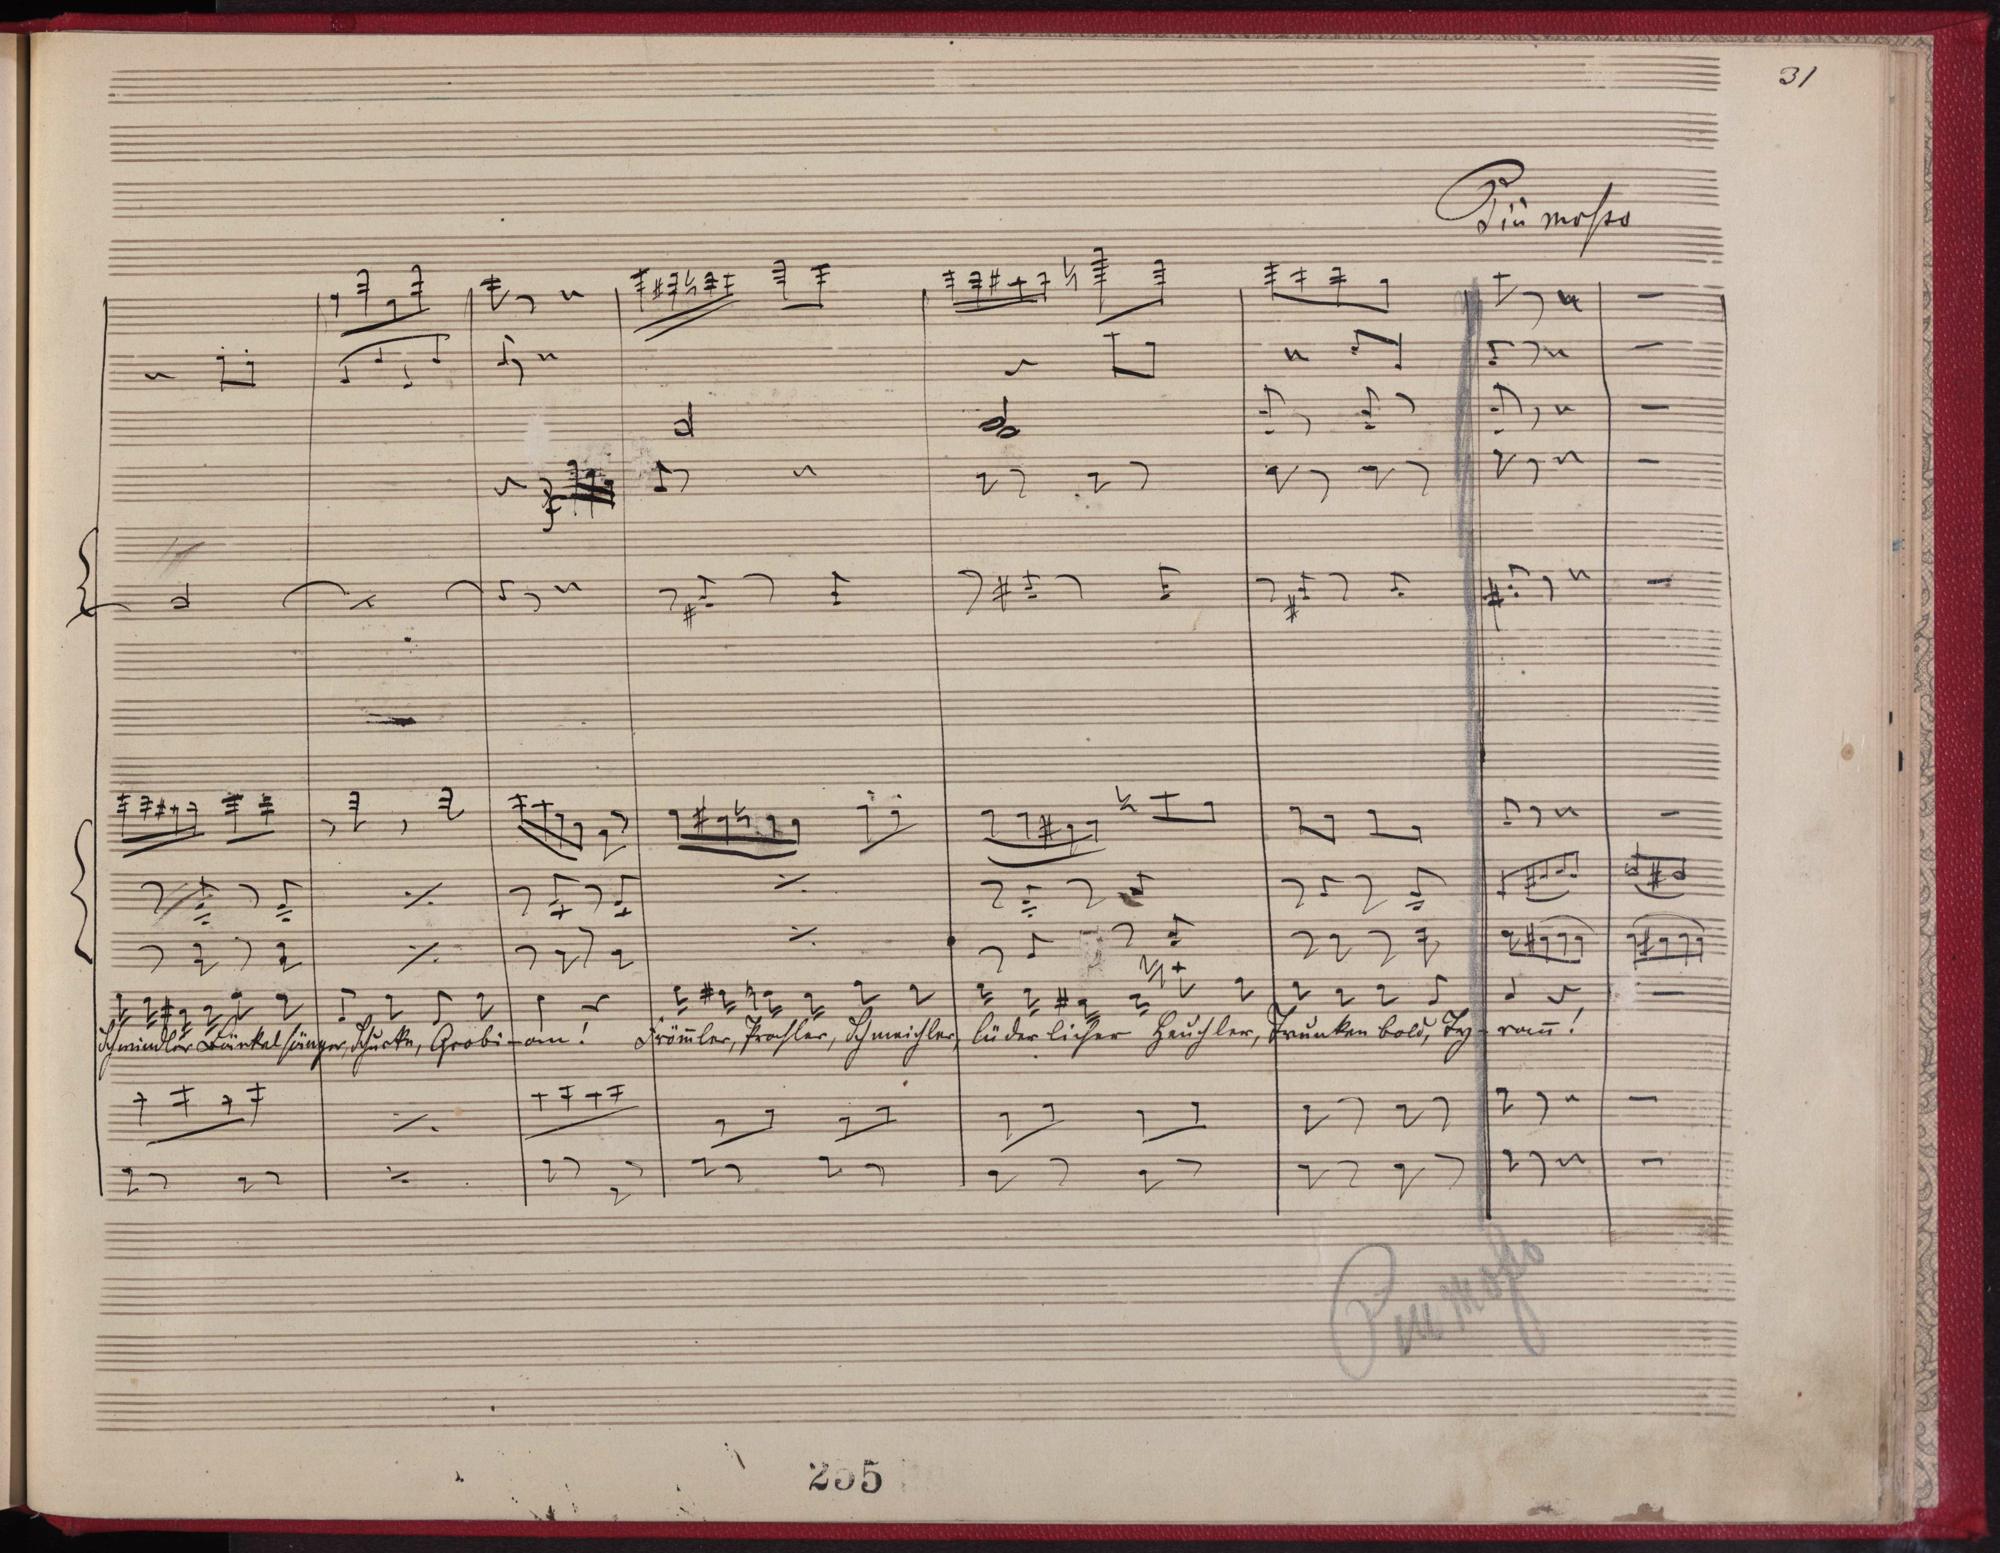 31
Più mosso
Schwindler Bänkelsänger, Schurke, Grobi-an! Frömler, Prahler, Schmeichler, lüderlicher Heuchler, Trunkenbold, Ty-rann!
Piu mosso
255